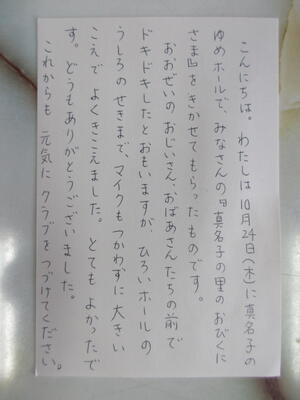 こんにちは。わたしは10月24日(木)に真名子の
ゆめホールで、みなさんの『真名子の里のおびくに
さま』をきかせてもらったものです。
おおぜいのおじいさん、おばあさんたちの前で
ドキドキしたとおもいますが、ひろいホールの
うしろのせきまで、マイクもつかわずに大きい
こえでよくきこえました。とてもよかったで
す。どうもありがとうございました。
これからも元気にクラブをつづけてください。